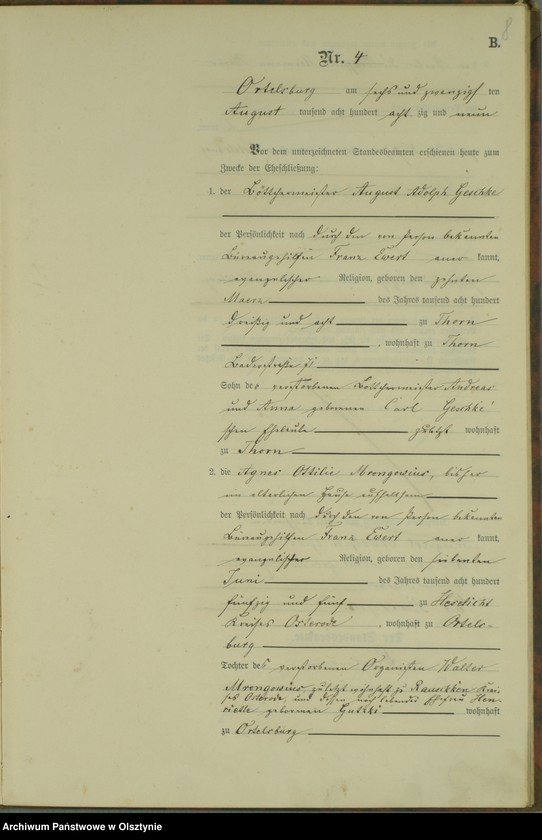 8
B.
Nr. 4
Ortelsburg am sechs und zwanzigsten
August tausend acht hundert acht zig und neun
Vor dem unterzeichneten Standesbeamten erschienen heute zum
Zwecke der Eheschließung:
1. der Böttchermeister August Adolph Geschke
der Persönlichkeit nach durch den von Person bekannten
Büreaugehilfen Franz Ewert aner kannt,
evangelischer Religion, geboren den zehnten
Maerz des Jahres tausend acht hundert
dreißig und acht zu Thorn
, wohnhaft zu Thorn
Sohn des verstorbenen Böttchermeister Andreas
und Anna geborenen Carl Geschke'
schen Eheleute zuletzt wohnhaft
zu Thorn
2. die Agnes Ottilie Mrongowius, bisher
im elterlichen Hause
der Persönlichkeit nach durch den von Person bekannten
Büreaugehilfen Franz Ewert aner kannt,
evangelischer Religion, geboren den siebenten
Juni des Jahres tausend acht hundert
fünfzig und fünf zu Heselicht
Kreises Osterode, wohnhaft zu Ortels-
burg
Tochter des verstorbenen Organisten Walter
Mrongowius, zuletzt wohnhaft zu Rauschken Krei-
ses Osterode, und dessen noch lebender Ehefrau Hen-
riette geborenen wohnhaft
zu Ortelsburg
Archiwum Państwowe w Olsztynie